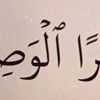 رًا ٱلْوَصِ